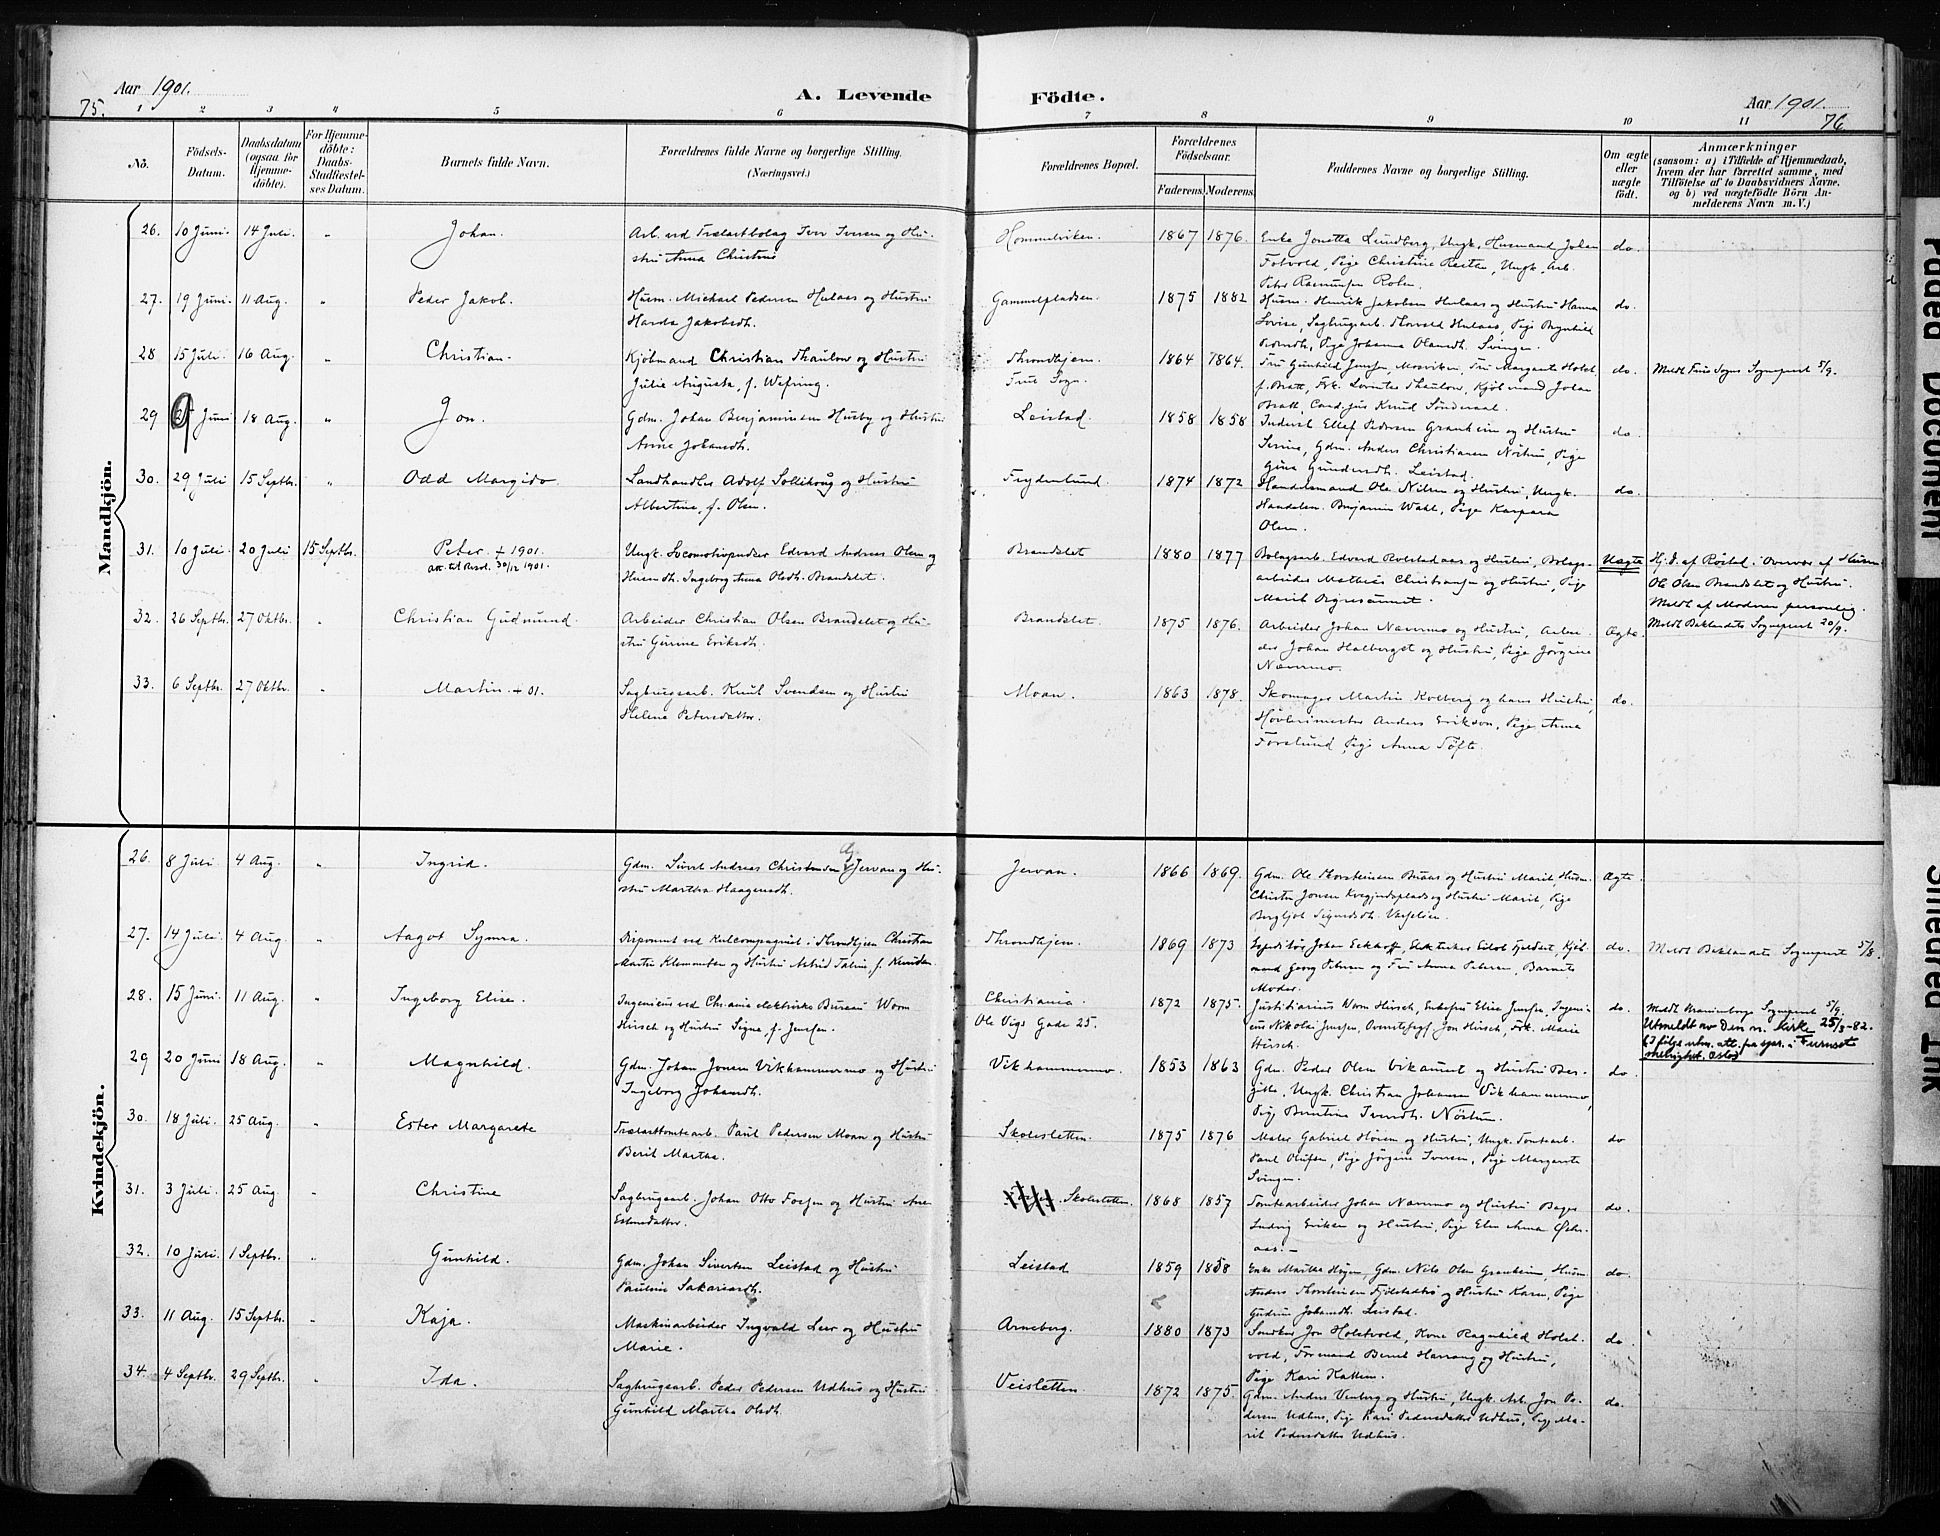 Aar 1901.
75.
A. Levende Födte.
Aar 1901.
76
1 2 3 4 5 6 7 8 9 10 11
No.
Födsels-Datum.
Daabsdatum (ogsaa for Hjemmedöbte).
For Hjemmedöbte: Daabs-Stadfæstelses Datum.
Barnets fulde Navn.
Forældrenes fulde Navne og borgerlige Stilling. (Næringsvei.)
Forældrenes Bopæl.
Forældrenes Födselsaar.
Faderens. Moderens.
Faddernes Navne og borgerlige Stilling.
Om ægte eller uægte födt.
Anmærkninger
(saasom: a) i Tilfælde af Hjemmedaab, hvem der har forrettet samme, med Tilföielse af to Daabsvidners Navne, og b) ved uægtefödte Börn Anmelderens Navn m. V.)
Mandkjön.
26. 10 Juni. 14 Juli. " Johan. Arb. ved Trælastbolag Iver Iversen og Hu-
stru Anna Christine
Hommelviken. 1867 1876. Enke Jonetta Lundberg, Ungk. Husmand Johan
Fotvold, Pige Christine Reitan, Ungk. Arb.
do.
27. 19 Juni. 11 Aug. " Peder Jakob. Husm. Michael Pedersen Hulaas og Hustru
Harda Jakobsdh.
Gammelpladsen. 1875 1882 Husm. Henrik Jakobsen Hulaas og Hustru Hanna
Lovise, Sagbrugsarb. Thorvald Hulaas, Pige Brynhild
Pige Johanna Olausdh. Svingen.
do.
28 15 Juli. 16 Aug. " Christian. Kjøbmand Christian Thaulow og Hustru
Julie Augusta, f. Wefring.
Throndhjem. Frue Sogn. 1864 1864. Fru Gunhild Jenssen, Mosviken, Fru Margarete Holst
f. Bratt, Frk. Thaulow, Kjøbmand Johan
Bratt, Cand. jur. Knud Sønderaal.
do. Meldt Frue Sogns Sognepræst 5/9.
29 9 Juni 18 Aug. " Jon. Gdm. Johan Benjaminsen Husby og Hustru
Anne Johansdh.
Leistad. 1858 1858 Inderst Ellef Pedersen Granheim og Hustru
Serine, Gdm. Anders Christiansen Nöstru, Pige
Gina Gundersdh. Leistad.
do.
30. 29 Juli 15 Septbr. " Odd Margido. Landhandler Adolf Solliskoug og Hustru
Albertine, f. Olsen.
Frydenlund. 1874 1872 Handelsmand Ole Nilsen og Hustru, Ungk.
Handelsm. Benjamin Wahl, Pige Kaspara
Olsen.
do.
31. 10 Juli. 20 Juli 15 Septbr. Peter + 1901.
att. til Resd. 30/12 1901.
Ungk. Locomotivpudser Edvard Andreas Olsen og
Husmdh. Ingeborg Anna Olsdh. Brandslet.
Brandslet 1880 1877 Bolagsarb. Edvard Rolstadaas og Hustru, Bolags-
arbeider Mathias Christiansen og Hustru, Pige
Marit
Uægte Hj. D. af Röstad i Overvær af Husm.
Ole Olsen Brandslet og Hustru.
Meldt af Moderen personlig.
Meldt Baklandets Sognepræst 20/9.
32. 26 Septbr. 27 Oktbr. " Christian Gudmund. Arbeider Christian Olsen Brandslet og Hu-
stru Gurine Eriksdh.
Brandslet. 1875 1876. Arbeider Johan Navnmo og Hustru, Arbei-
der Johan Halberget og Hustru, Pige Jörgine
Navnmo.
Ægte.
33. 6 Septbr. 27 Oktbr. " Martin. + 01. Sagbrugsarb. Knut Svendsen og Hustru
Helene Petersdatter.
Moan. 1863 1878. Skomager Martin Kolberg og hans Hustru,
Høvlerimester Anders Erikson, Pige Anna
Forslund, Pige Anna Töfte.
do.
Kvindekjön.
26. 8 Juli 4 Aug. " Ingrid. Gdm. Sivert Andreas Christensen Jervan og Hu-
stru Martha Haagensdh.
Jervan. 1866 1869. Gdm. Ole Thorsteinsen Braas og Hustru Marit, Husm.
Christen Jonsen Kvegjerdsplads og Hustru Marit, Pige
Bergljot Sigurdsdh.
Ægte.
27. 14 Juli. 4 Aug. " Aagot Synva. Disponent ved Kulcompagniet i Throndhjem Christian
Martin Klemmetsen og Hustru Astrid f. Knudsen.
Throndhjem. 1869 1873 Expeditör Johan Eckhoff, Kjøb-
mand Georg Petersen og Fru Anna Petersen, Barnets
Moder.
do. Meldt Baklandets Sognepræst 5/8.
28. 15 Juni. 11 Aug. " Ingeborg Elise. Ingeniør ved Chr.ania elektriske Bureau Worm
Hirsch og Hustru Signe, f. Jenssen.
Christiania
Ole Vigs Gade 25.
1872 1875. Justitiarius Worm Hirsch, Enkefru Elise Jenssen, Ingeni-
eur Nikolai Jenssen, Jon Hirsch, Frk. Marie
Hirsch.
do. Meldt Uranienborgs Sognepræst 5/9.
Utmeldt av Den n. kirke 25/3-82.
Ifölge utm. att. fra spr. i Furuset
menighet, Oslo
29 20 Juni 18 Aug. " Magnhild. Gdm. Johan Jonsen Vikhammermo og Hustru
Ingeborg Johansdh.
Vikhammermo. 1853 1863 Gdm. Peder Olsen Vikaunet og Hustru Ber-
gitte, Ungk. Christian Johansen Vikhammermo,
Pige Berntine Iversdh. Nöstum.
do
30. 18 Juli. 25 Aug. " Ester Margarete Trælasttomtearb. Paul Pedersen Moan og Hustru
Berit Martha.
Skoleslätten. 1875 1876 Maler Gabriel Høisen og Hustru, Ungk. Tomtarb.
Paul Olufsen, Pige Jörgine Iversen, Pige Margarete
Svingen.
do
31. 3 Juli. 25 Aug. " Christine Sagbrugsarb. Johan Otto Fossen og Hustru Ane
Estensdatter.
Skoleslætten. 1868 1857 Tomtearbeider Johan Navnmo og Hustru
Ludvig Eriksen og Hustru, Pige Elen Anna
do.
32. 10 Juli. 1 Septbr. " Gunhild. Gdm. Johan Sivertsen Leistad og Hustru
Pauline Sakariasdh.
Leistad 1859 1858 Enke Martha Høyen, Gdm. Nils Olsen Granheim, Husm.
Anders Thorsteinsen og Hustru Karen, Pige
Gudrun Johansdh. Leistad.
do.
33. 11 Aug. 15 Septbr. " Kaja. Maskinarbeider Ingvald Leer og Hustru
Marie.
Arneberg. 1880 1873 Snedker Jon Holstvold, Kone Ragnhild Holst-
vold, Formand Bernt Harrang og Hustru,
Pige Kari Hatten.
do
34. 4 Septbr. 29 Septbr. " Ida. Sagbrugsarb. Peder Pedersen Udhus og Hustru
Gunhild Martha Olsdh.
Veisletten 1872 1875. Gdm. Anders Venberg og Hustru, Ungk. Arb. Jon Pe-
dersen Udhus, Pige Kari Pedersdatter Udhus, Pige Ma-
rit Pedersdatter Udhus.
do.
Faded Document
Smeared Ink